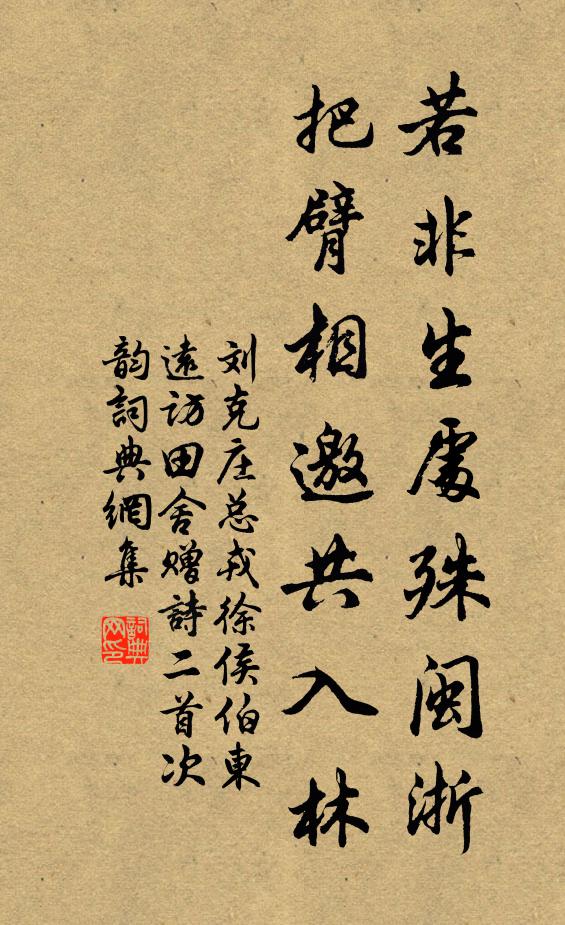 若非生處殊閩浙
把臂相邀共入林
刘克庄总戎徐侯伯東
遠访田舍赠詩二首次
韵詞典網集
詞典
网印